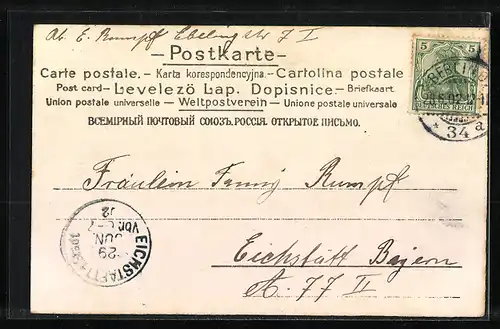 Ab. E. Rumpf Ebelingstr 7 I
– Postkarte –
Carte postale. – Karta korespondencyjna – Cartolina postale
Post card – Levelező Lap. Dopisnice. – Briefkaart
Union postale universelle – Weltpostverein – Unione postale universale
ВСЕМІРНЫЙ ПОЧТОВЫЙ СОЮЗЪ. РОССІЯ. ОТКРЫТОЕ ПИСЬМО.
5 5
DEUTSCHES REICH
BERLIN
* 34 a
Fräulein Fanny Rumpf
Eichstätt Bayern
A. 77 II
EICHSTAETT
29
JUN.
02